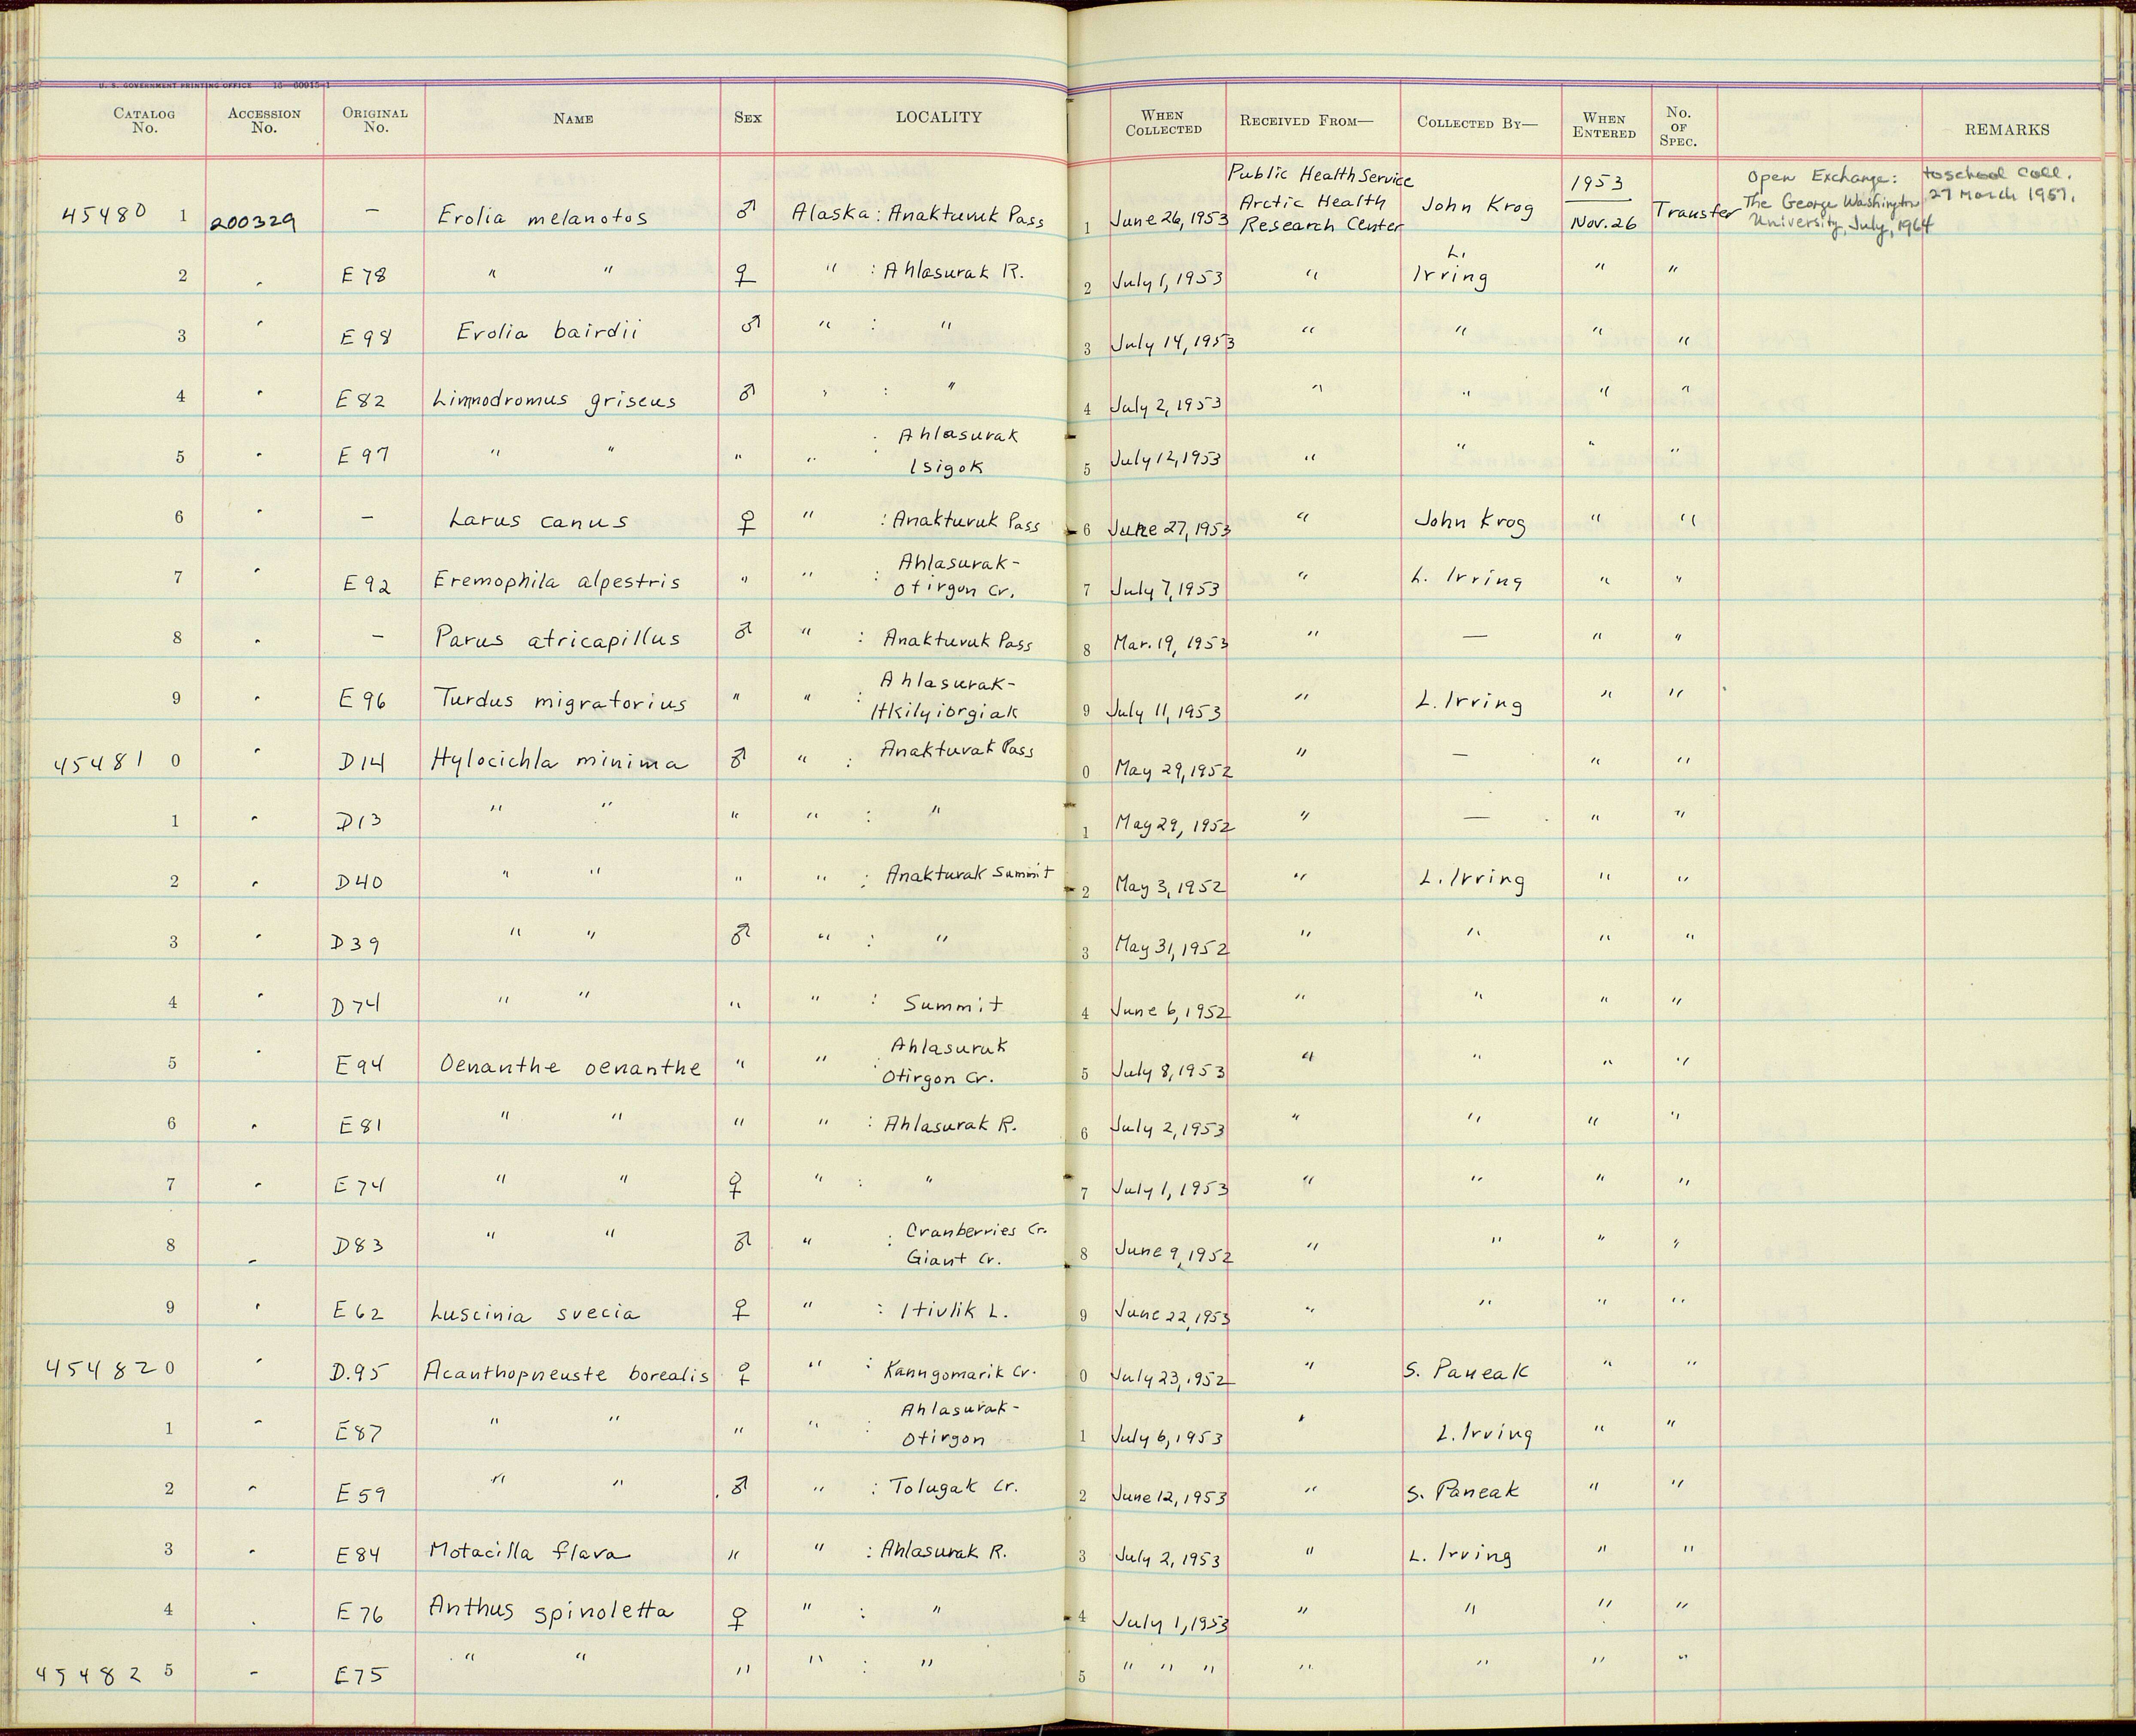 U. S. GOVERNMENT PRINTING OFFICE 16—60915-1
CATALOG No. ACCESSION No. ORIGINAL No. NAME SEX LOCALITY WHEN COLLECTED RECEIVED FROM— COLLECTED BY— WHEN ENTERED No. OF SPEC. REMARKS
45480 1 200329 – Erolia melanotos ♂ Alaska: Anaktuvuk Pass 1 June 26, 1953 Public Health Service Arctic Health Research Center John Krog 1953 Nov. 26 Transfer Open Exchange: The George Washington University, July, 1964 to school coll. 27 March 1957.
2 " E78 " " ♀ " : Ahlasurak R. 2 July 1, 1953 " L. Irring " "
3 " E98 Erolia bairdii ♂ " : " 3 July 14, 1953 " " " "
4 " E82 Limnodromus griseus ♂ " : " 4 July 2, 1953 " " " "
5 " E97 " " " " : Ahlasurak Isigok 5 July 12, 1953 " " " "
6 " – Larus canus ♀ " : Anaktuvuk Pass 6 June 27, 1953 " John Krog " "
7 " E92 Eremophila alpestris " " : Ahlasurak- Otirgon Cr. 7 July 7, 1953 " L. Irring " "
8 " – Parus atricapillus ♂ " : Anaktuvuk Pass 8 Mar. 19, 1953 " — " "
9 " E96 Turdus migratorius " " : Ahlasurak- Itkilyiorgiak 9 July 11, 1953 " L. Irring " "
45481 0 " D14 Hylocichla minima ♂ " : Anaktuvak Pass 0 May 29, 1952 " — " "
1 " D13 " " " " : " 1 May 29, 1952 " — " "
2 " D40 " " " " : Anakturak Summit 2 May 3, 1952 " L. Irring " "
3 " D39 " " ♂ " : " 3 May 31, 1952 " " " "
4 " D74 " " " " : Summit 4 June 6, 1952 " " " "
5 " E94 Oenanthe oenanthe " " : Ahlasuruk Otirgon Cr. 5 July 8, 1953 " " " "
6 " E81 " " " " : Ahlasurak R. 6 July 2, 1953 " " " "
7 " E74 " " ♀ " : " 7 July 1, 1953 " " " "
8 " D83 " " ♂ " : Cranberries Cr. Giant Cr. 8 June 9, 1952 " " " "
9 " E62 Luscinia svecia ♀ " : Itivlik L. 9 June 22, 1953 " " " "
45482 0 " D.95 Acanthopneuste borealis ♀ " : Kanngomarik Cr. 0 July 23, 1952 " S. Paneak " "
1 " E87 " " " " : Ahlasurak- Otirgon 1 July 6, 1953 " L. Irving " "
2 " E59 " " ♂ " : Tolugak Cr. 2 June 12, 1953 " S. Paneak " "
3 " E84 Motacilla flava " " : Ahlasurak R. 3 July 2, 1953 " L. Irving " "
4 " E76 Anthus spinoletta ♀ " : " 4 July 1, 1953 " " " "
45482 5 " E75 " " " " : " 5 " " " " " " "